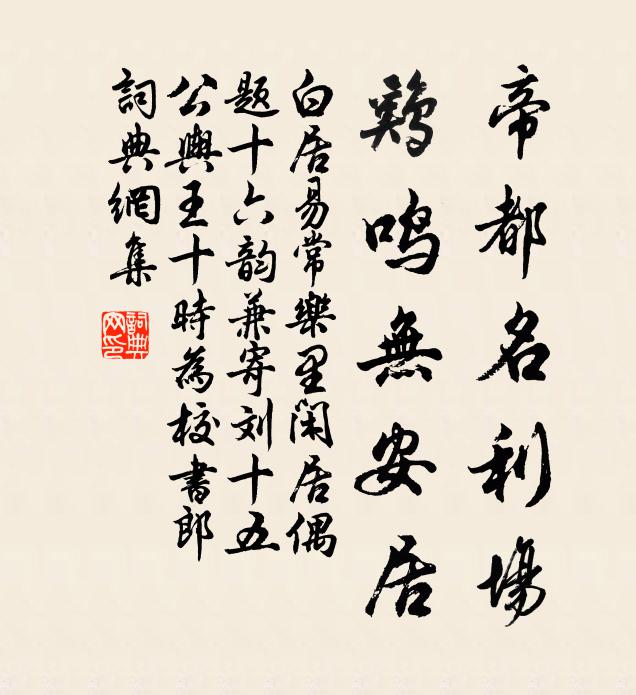 帝都名利場
鷄鳴無安居
白居易常樂里闲居偶
题十六韵兼寄刘十五
公興王十時為校書郎
詞典網集
詞典網印